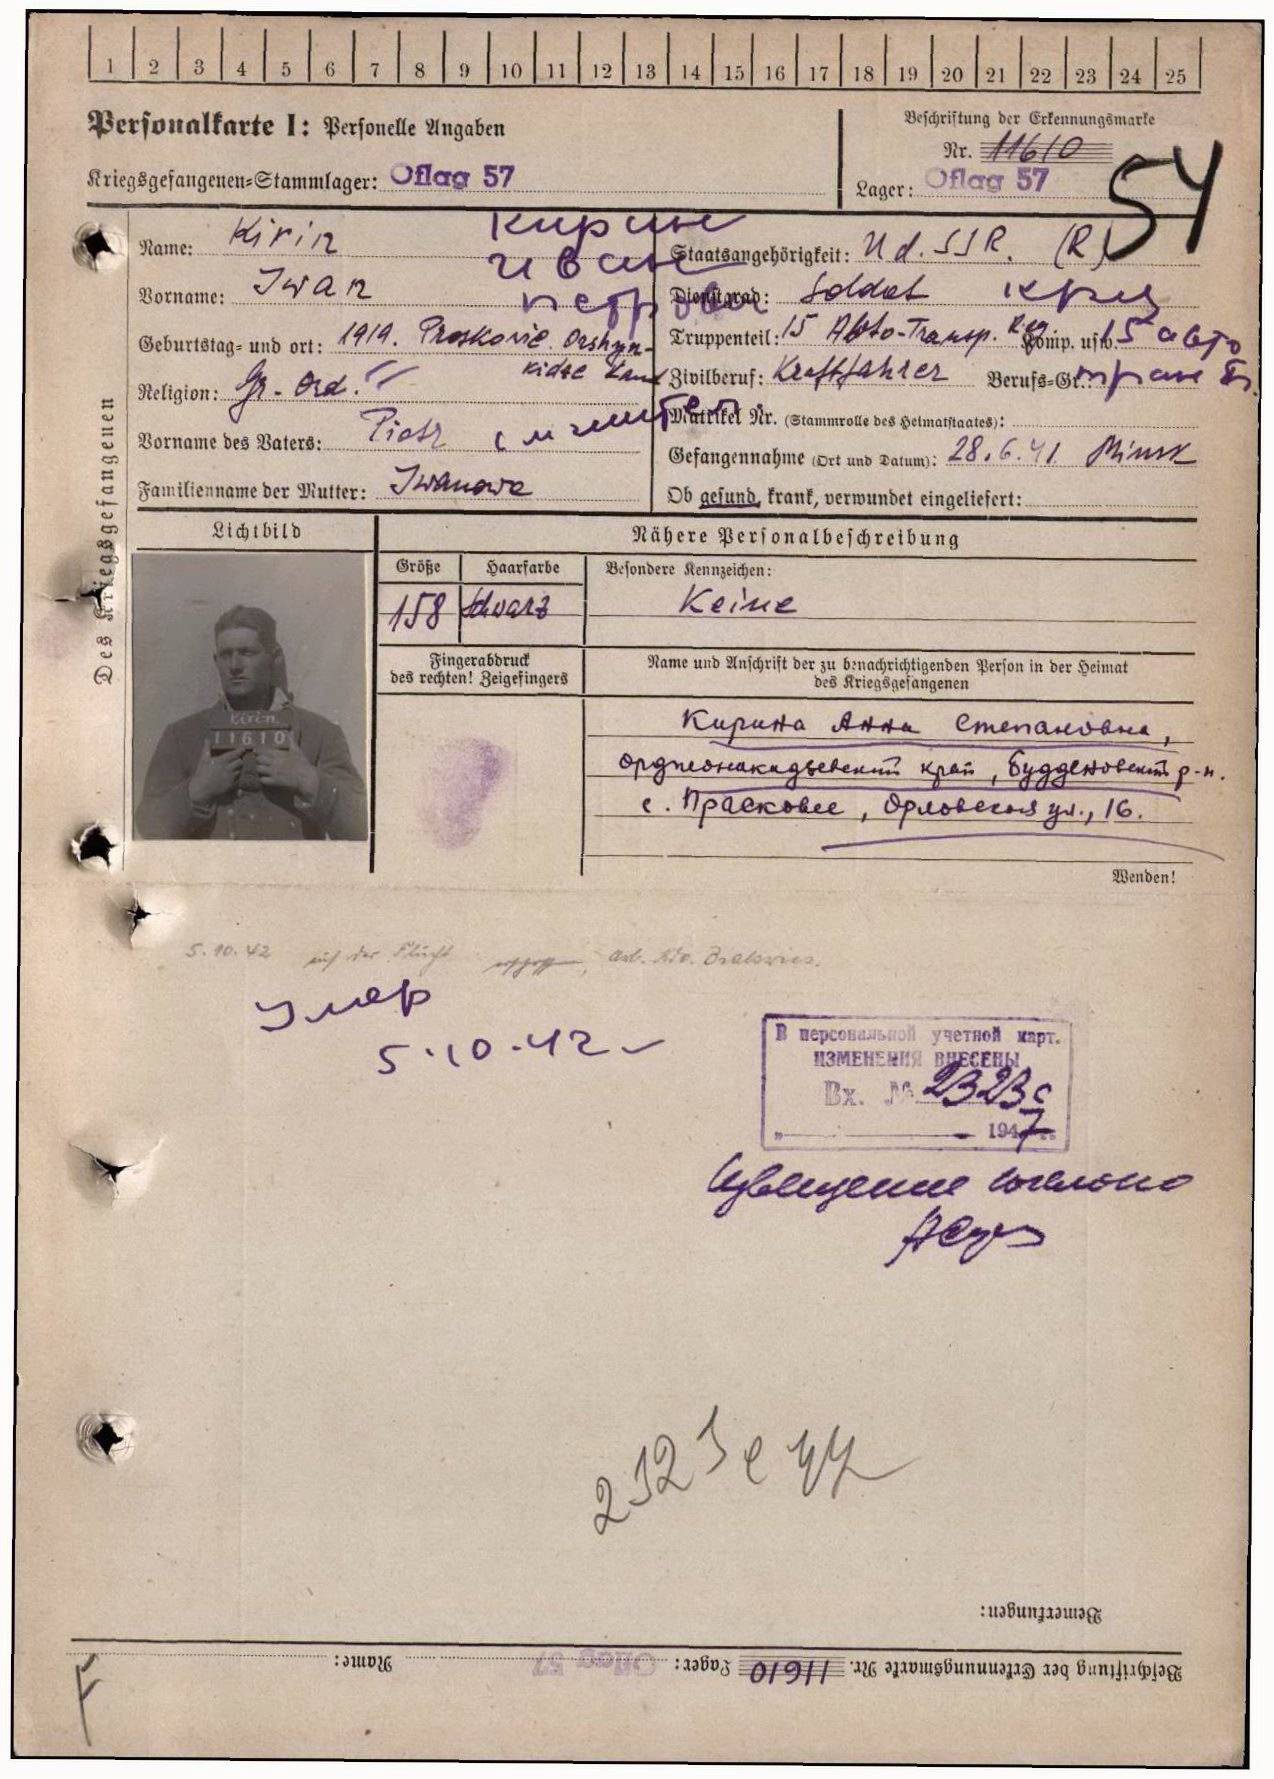 1 2 3 4 5 6 7 8 9 10 11 12 13 14 15 16 17 18 19 20 21 22 23 24 25
Personalkarte I: Personelle Angaben
Kriegsgefangenen-Stammlager: Oflag 57
Beschriftung der Erkennungsmarke
Nr. 11610
Lager: Oflag 57
54
Des Kriegsgefangenen
Name: Kirin
Кирин
Vorname: Iwan
Иван
Geburtstag- und ort: 1919. Praskovie. Orshyn-
kidse Land
Religion: Gr.-Ord.
Vorname des Vaters: Piotr
Familienname der Mutter: Iwanowa
Staatsangehörigkeit: U.d.SSR. (R)
Dienstgrad: Soldat
Truppenteil: 15 Auto-Transp. Reg. Komp. usw.: 15 авто
Zivilberuf: Kraftfahrer Berufs-Gr.:
Matrikel Nr. (Stammrolle des Heimatstaates):
Gefangennahme (Ort und Datum): 28.6.41 Minsk
Ob gesund, krank, verwundet eingeliefert:
Lichtbild
Kirin
11610
Nähere Personalbeschreibung
Größe
Haarfarbe
Besondere Kennzeichen:
158
Schwarz
Keine
Fingerabdruck
des rechten! Zeigefingers
Name und Anschrift der zu benachrichtigenden Person in der Heimat
des Kriegsgefangenen
Кирина Анна Степановна,
Орджонакидзевский край, Будденовский р-н.
с. Прасковее, Орловская ул., 16.
Wenden!
5.10.42 auf der Flucht erschossen, Arb. Kdo.
Умер
5.10.42
В персональной учетной карт.
ИЗМЕНЕНИЯ ВНЕСЕНЫ
Вх. № 2323с
1947 г.
Извещение
2323с
Bemerkungen:
Beschriftung der Erkennungsmarke Nr. 11610 Lager: Oflag 57 Name:
F